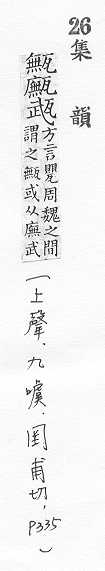 26 集韻
甒
方言甖周魏之間
謂之甒或从廡武
(上聲.九噳.罔甫切,P335)